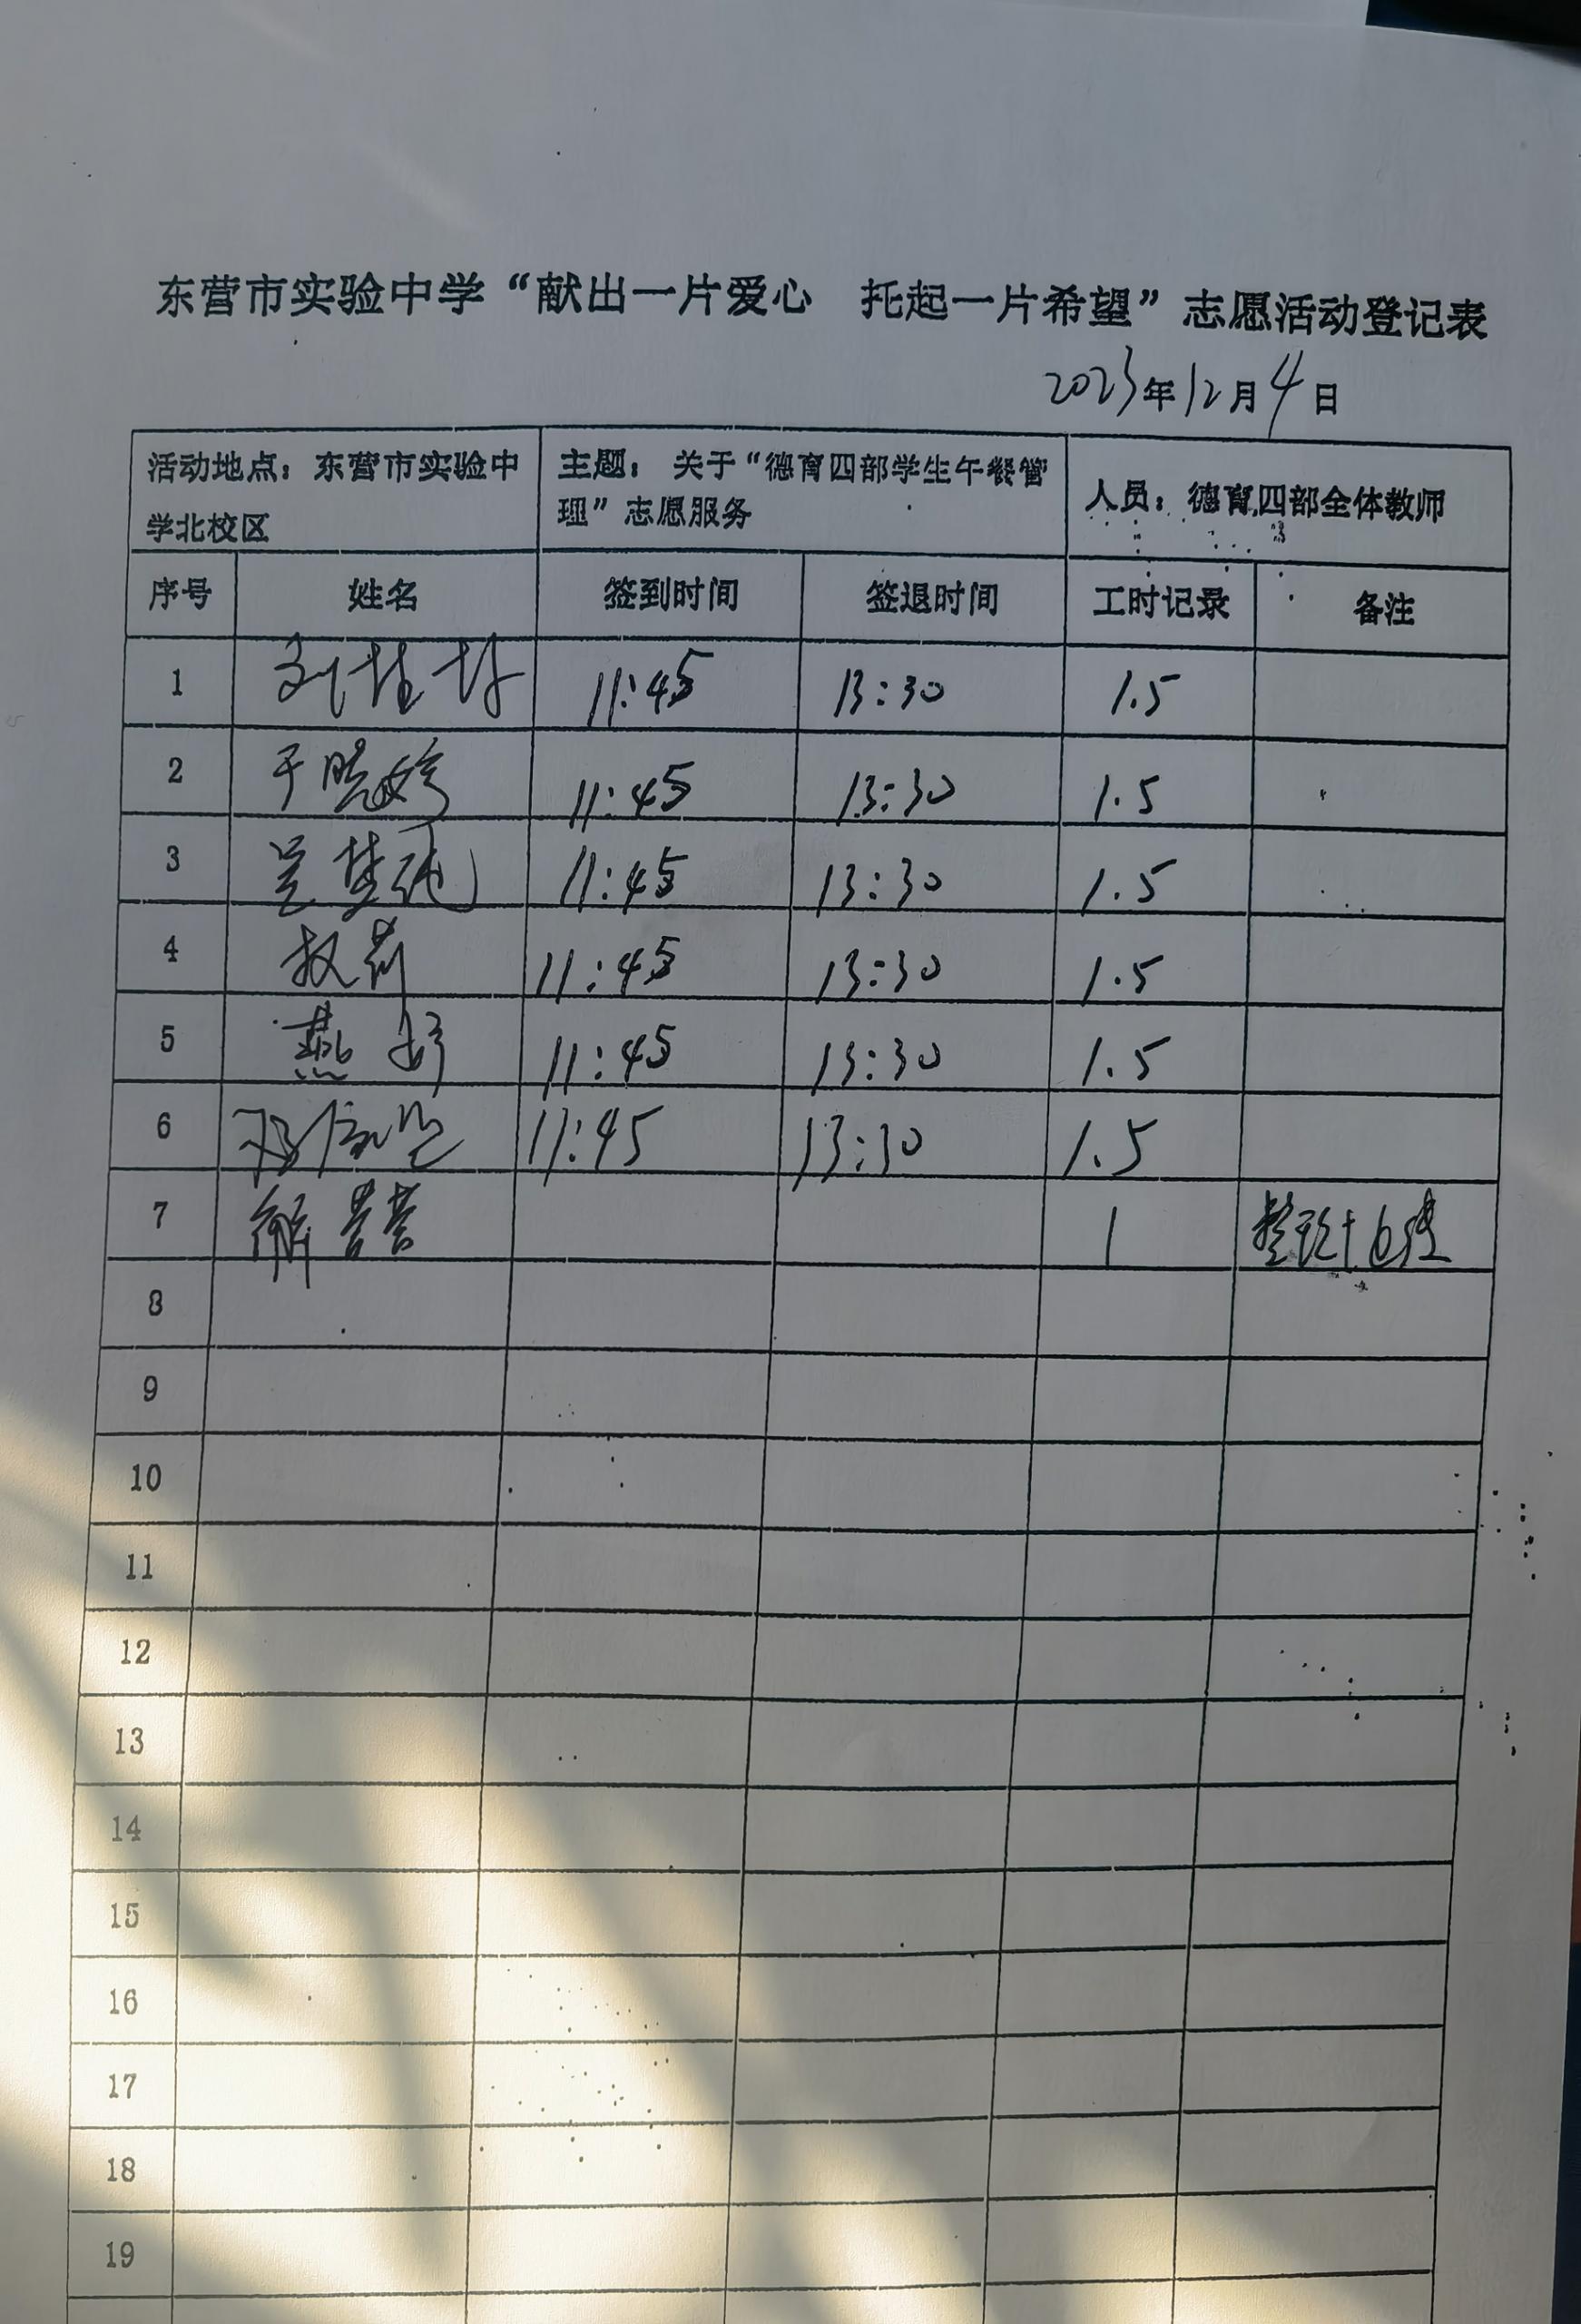 东营市实验中学“献出一片爱心 托起一片希望”志愿活动登记表
2023年12月4日
活动地点：东营市实验中学北校区 主题：关于“德育四部学生午餐管理”志愿服务 人员：德育四部全体教师
序号 姓名 签到时间 签退时间 工时记录 备注
1 11:45 13:30 1.5
2 于晓婷 11:45 13:30 1.5
3 11:45 13:30 1.5
4 权荷 11:45 13:30 1.5
5 燕 11:45 13:30 1.5
6 11:45 13:30 1.5
7 解营营 1
8
9
10
11
12
13
14
15
16
17
18
19